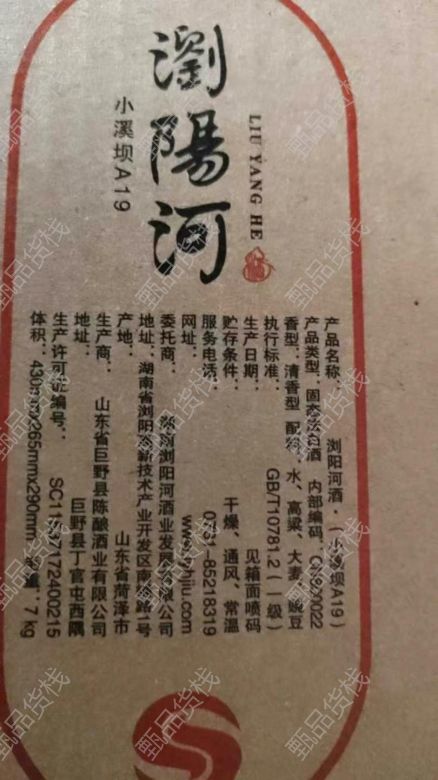 瀏陽河
LIU YANG HE
小溪坝A19
产品名称: 浏阳河酒·(小溪坝A19)
产品类型: 固态法白酒 内部编码:
香型: 清香型 配料: 水、高粱、大麦、豌豆
执行标准: GB/T10781.2 (一级)
生产日期: 见箱面喷码
贮存条件: 干燥、通风、常温
服务电话: 0731-85218319
网址:
委托商: 湖南浏阳河酒业发展有限公司
地址: 湖南省浏阳高新技术产业开发区南路1号
产地: 山东省菏泽市
生产商: 山东省巨野县陈酿酒业有限公司
地址: 巨野县丁官屯西隅
生产许可证编号:
体积: 430mmx265mmx290mm 重量: 7kg
甄品货栈